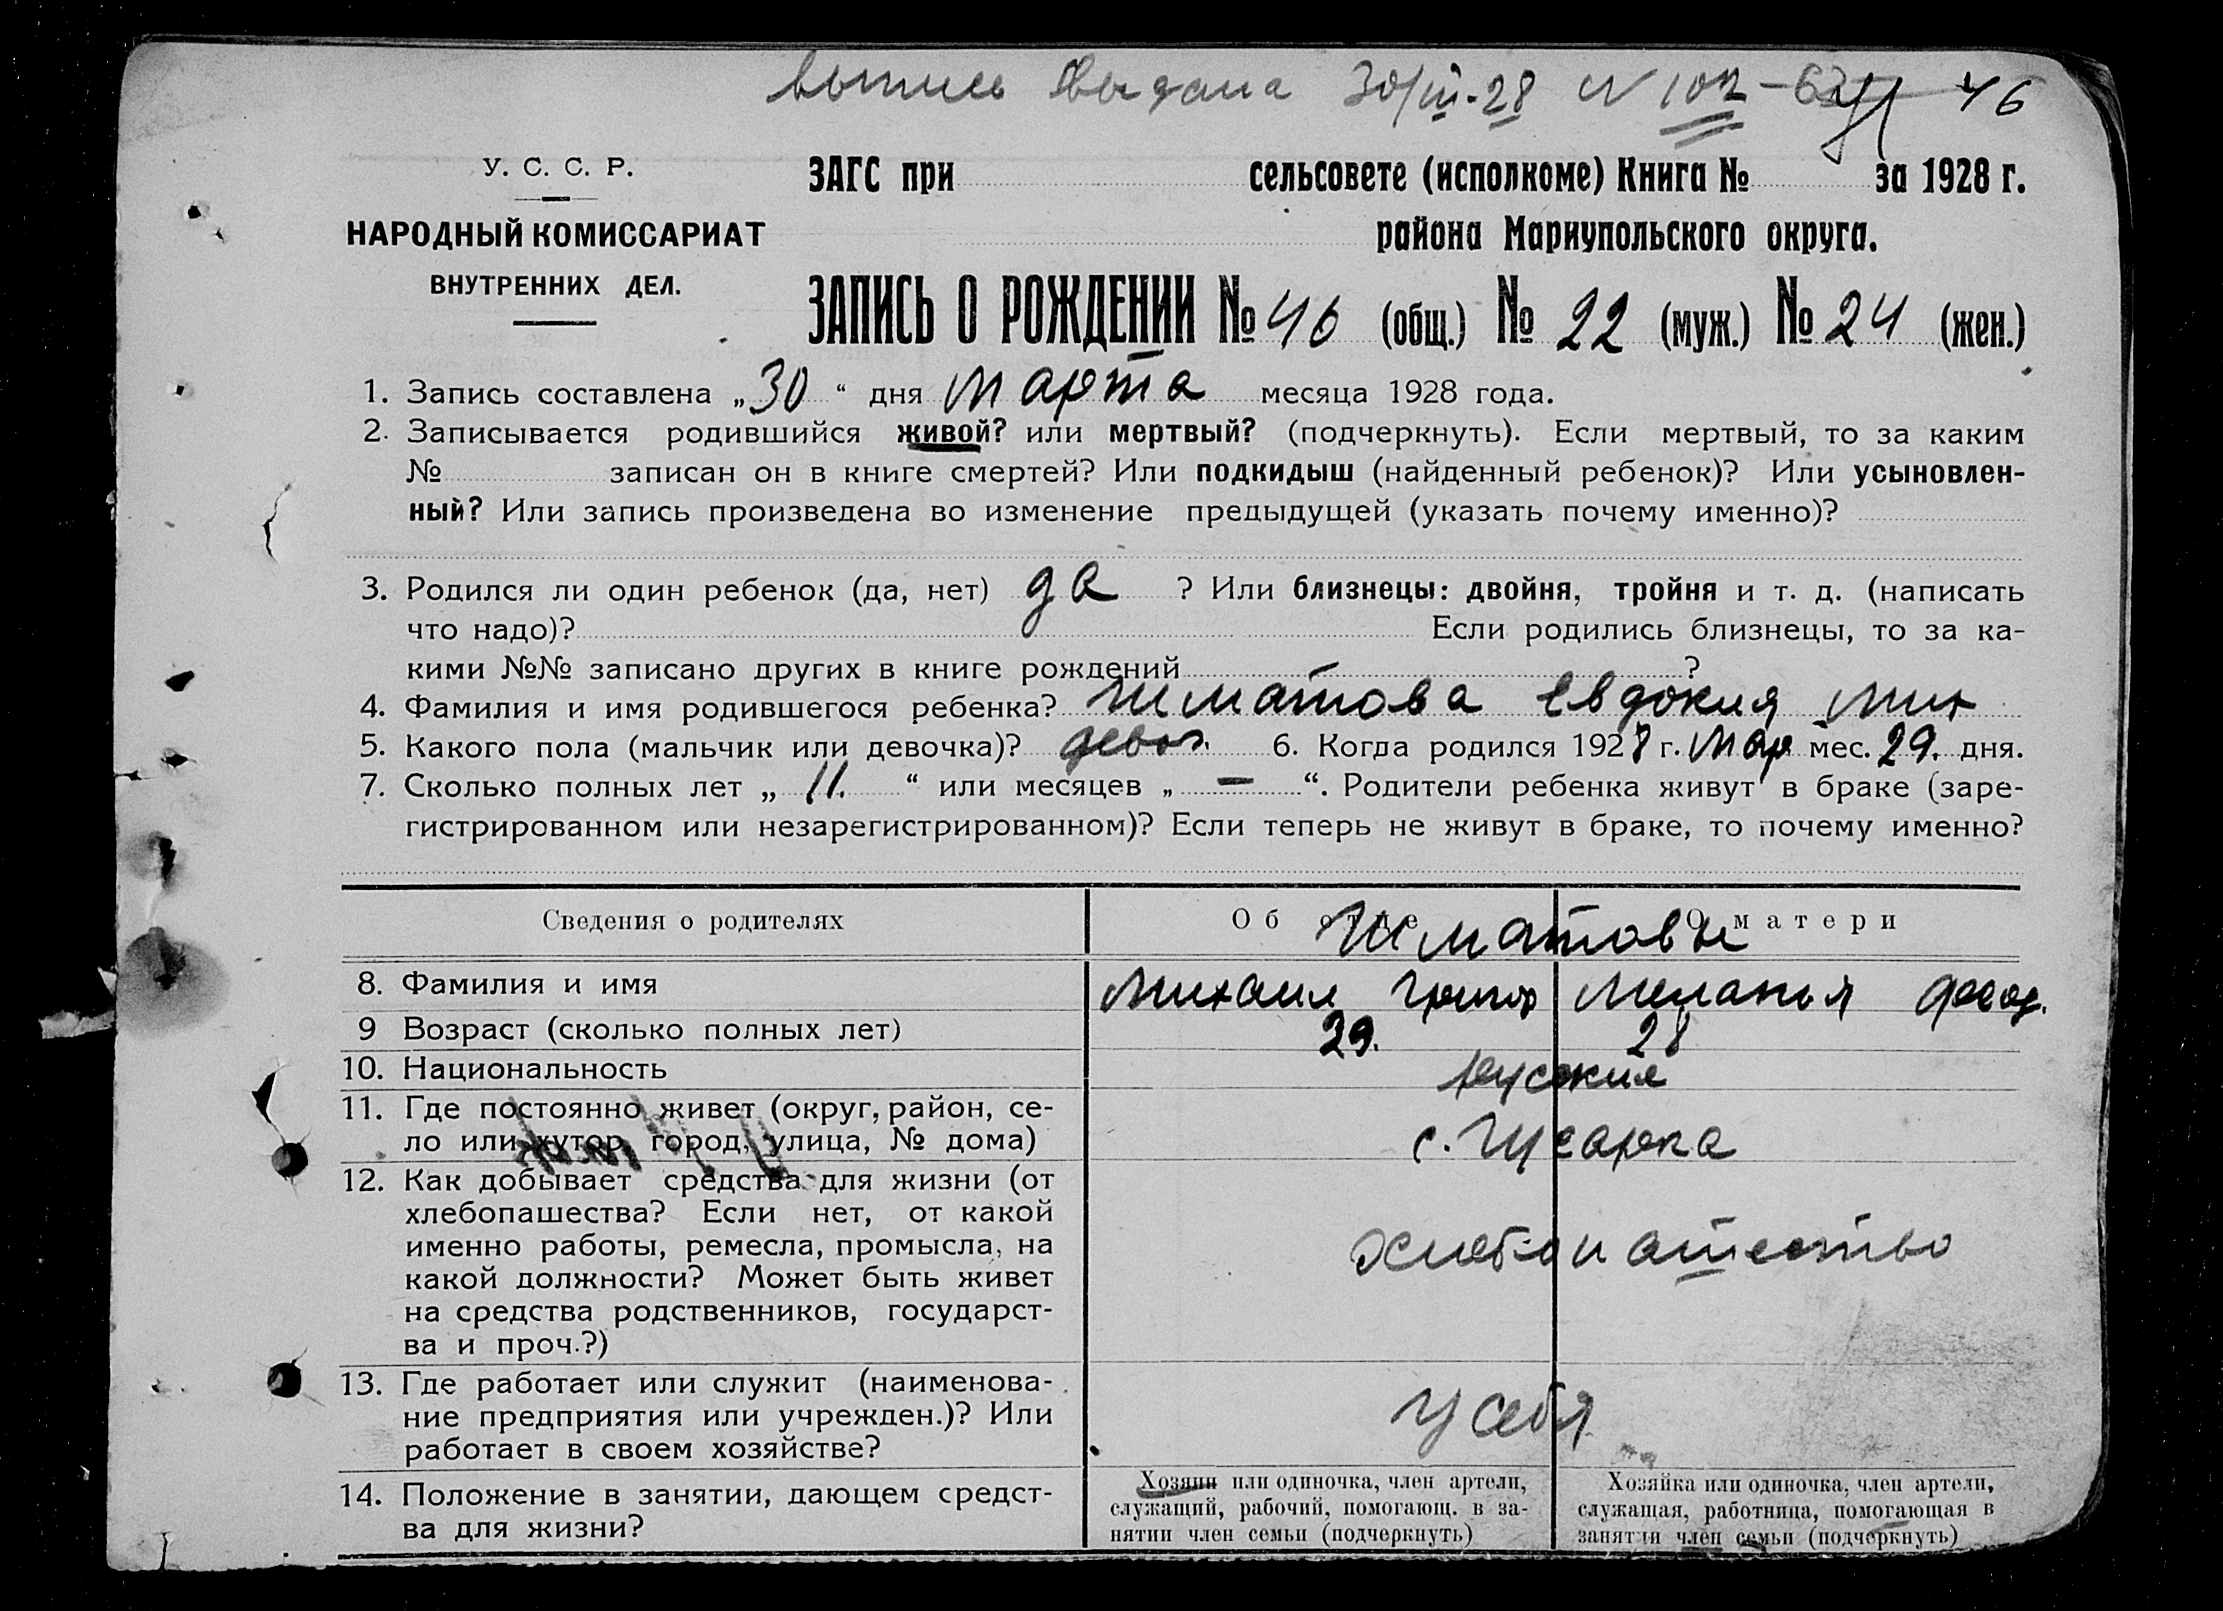 выпись выдана 30/III-28 N 102 46
У. С. С. Р.
ЗАГС при сельсовете (исполкоме) Книга № за 1928 г.
НАРОДНЫЙ КОМИССАРИАТ
района Мариупольского округа.
ВНУТРЕННИХ ДЕЛ.
ЗАПИСЬ О РОЖДЕНИИ № 46 (общ.) № 22 (муж.) № 24 (жен.)
1. Запись составлена „30“ дня марта месяца 1928 года.
2. Записывается родившийся живой? или мертвый? (подчеркнуть). Если мертвый, то за каким
№ записан он в книге смертей? Или подкидыш (найденный ребенок)? Или усыновлен-
ный? Или запись произведена во изменение предыдущей (указать почему именно)?
3. Родился ли один ребенок (да, нет) да ? Или близнецы: двойня, тройня и т. д. (написать
что надо)? Если родились близнецы, то за ка-
кими №№ записано других в книге рождений ?
4. Фамилия и имя родившегося ребенка? Шматова Евдокия Мих
5. Какого пола (мальчик или девочка)? девоч. 6. Когда родился 1928 г. Мар мес. 29. дня.
7. Сколько полных лет „ 11. “ или месяцев „ — “. Родители ребенка живут в браке (заре-
гистрированном или незарегистрированном)? Если теперь не живут в браке, то почему именно?
Сведения о родителях Об отце О матери
Шматовы
8. Фамилия и имя Михаил Григор Меланья Феод.
9 Возраст (сколько полных лет) 29. 28
10. Национальность русские
11. Где постоянно живет (округ, район, се-
ло или хутор, город, улица, № дома) с. Гусарка
12. Как добывает средства для жизни (от
хлебопашества? Если нет, от какой
именно работы, ремесла, промысла, на хлебопашество
какой должности? Может быть живет
на средства родственников, государст-
ва и проч.?)
13. Где работает или служит (наименова-
ние предприятия или учрежден.)? Или у себя
работает в своем хозяйстве?
14. Положение в занятии, дающем средст-
ва для жизни?
Хозяин или одиночка, член артели,
служащий, рабочий, помогающ. в за-
нятии член семьи (подчеркнуть)
Хозяйка или одиночка, член артели,
служащая, работница, помогающая в
занятии член семьи (подчеркнуть)